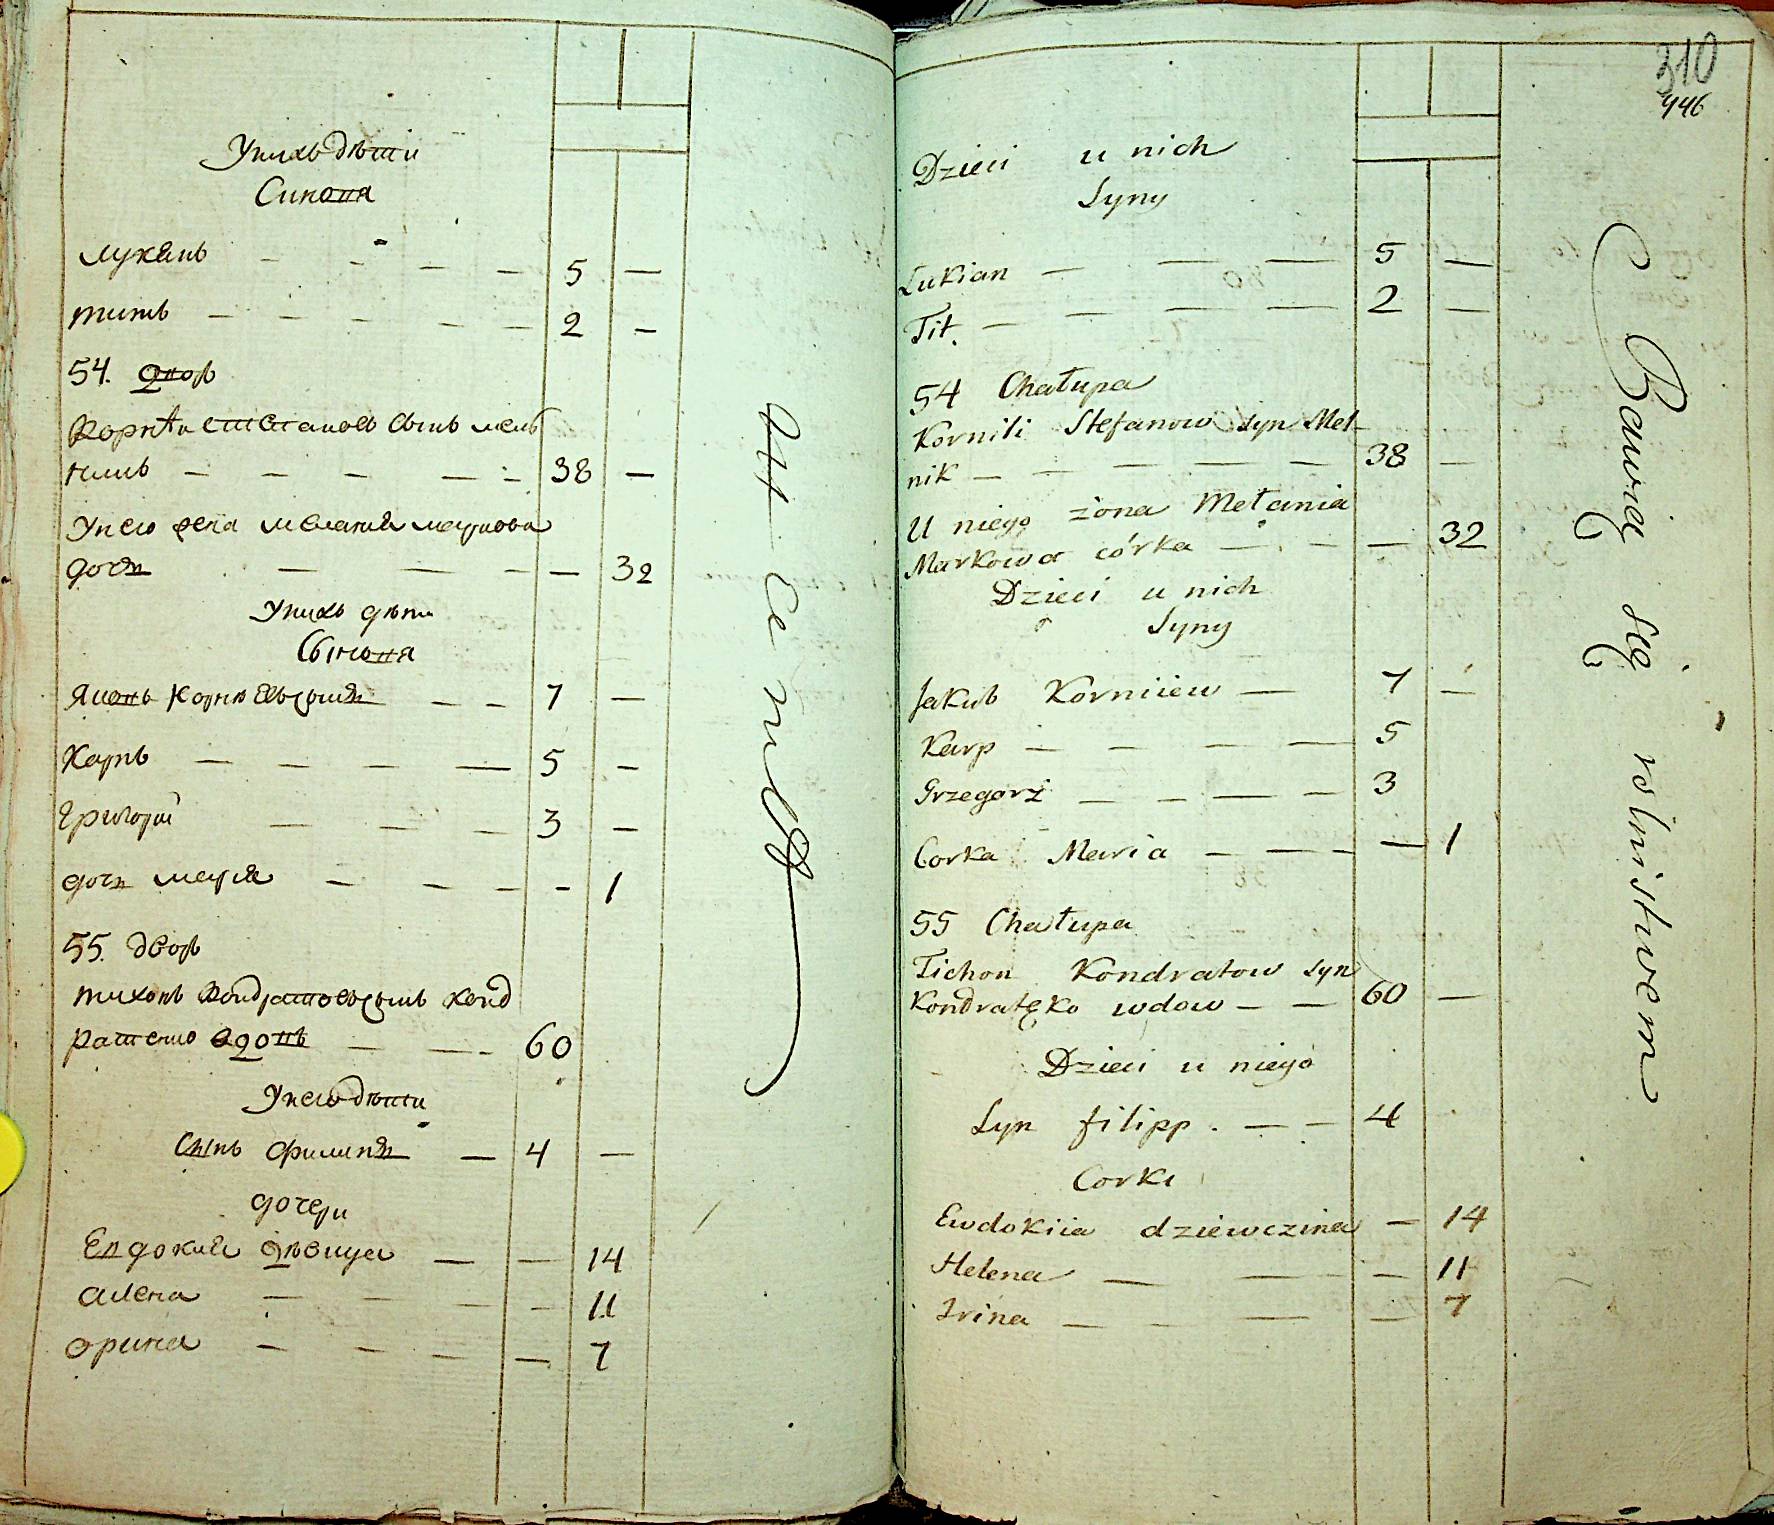 Унихъ дѣти
Синовя
Лукянъ — — — — 5 —
титъ — — — — — 2 —
54. Дворъ
Корнѣй Степановъ Сынъ мель
никъ — — — — — 38 —
Унего жена мелания маркова
дочь — — — — 32
Унихъ дѣти
Сыновя
Яковъ Корнѣевъ сынъ — — 7 —
Карпъ — — — — 5 —
Григорій — — — 3 —
дочь марія — — — — 1
55. дворъ
тихонъ Кондратовъ сынъ Конд
ратенко вдовъ — — 60
Унего дѣти
Сынъ Филипъ — 4 —
дочери
Евдокия дѣвица — — 14
алена — — — — 11
орина — — — — 7
310
446
Dzieci u nich
Syny
Lukian — — — 5 —
Tit. — — — — 2 —
54 Chałupa
Kornili Stefanow syn Mel-
nik — — — — — 38 —
U niego żona Mełania
Markowa córka — — — 32
Dzieci u nich
Syny
Jakub Korniiew — 7 —
Karp — — — — 5
Grzegorz — — — — 3
Corka Maria — — — — 1
55 Chałupa
Tichon Kondratow syn
Kondratęko wdow — — 60 —
Dzieci u niego
Syn filipp . — — 4
Corki
Ewdokiia dziewczina — 14
Helena — — — 11
Irina — — — — 7
Bawią się rolnistwem